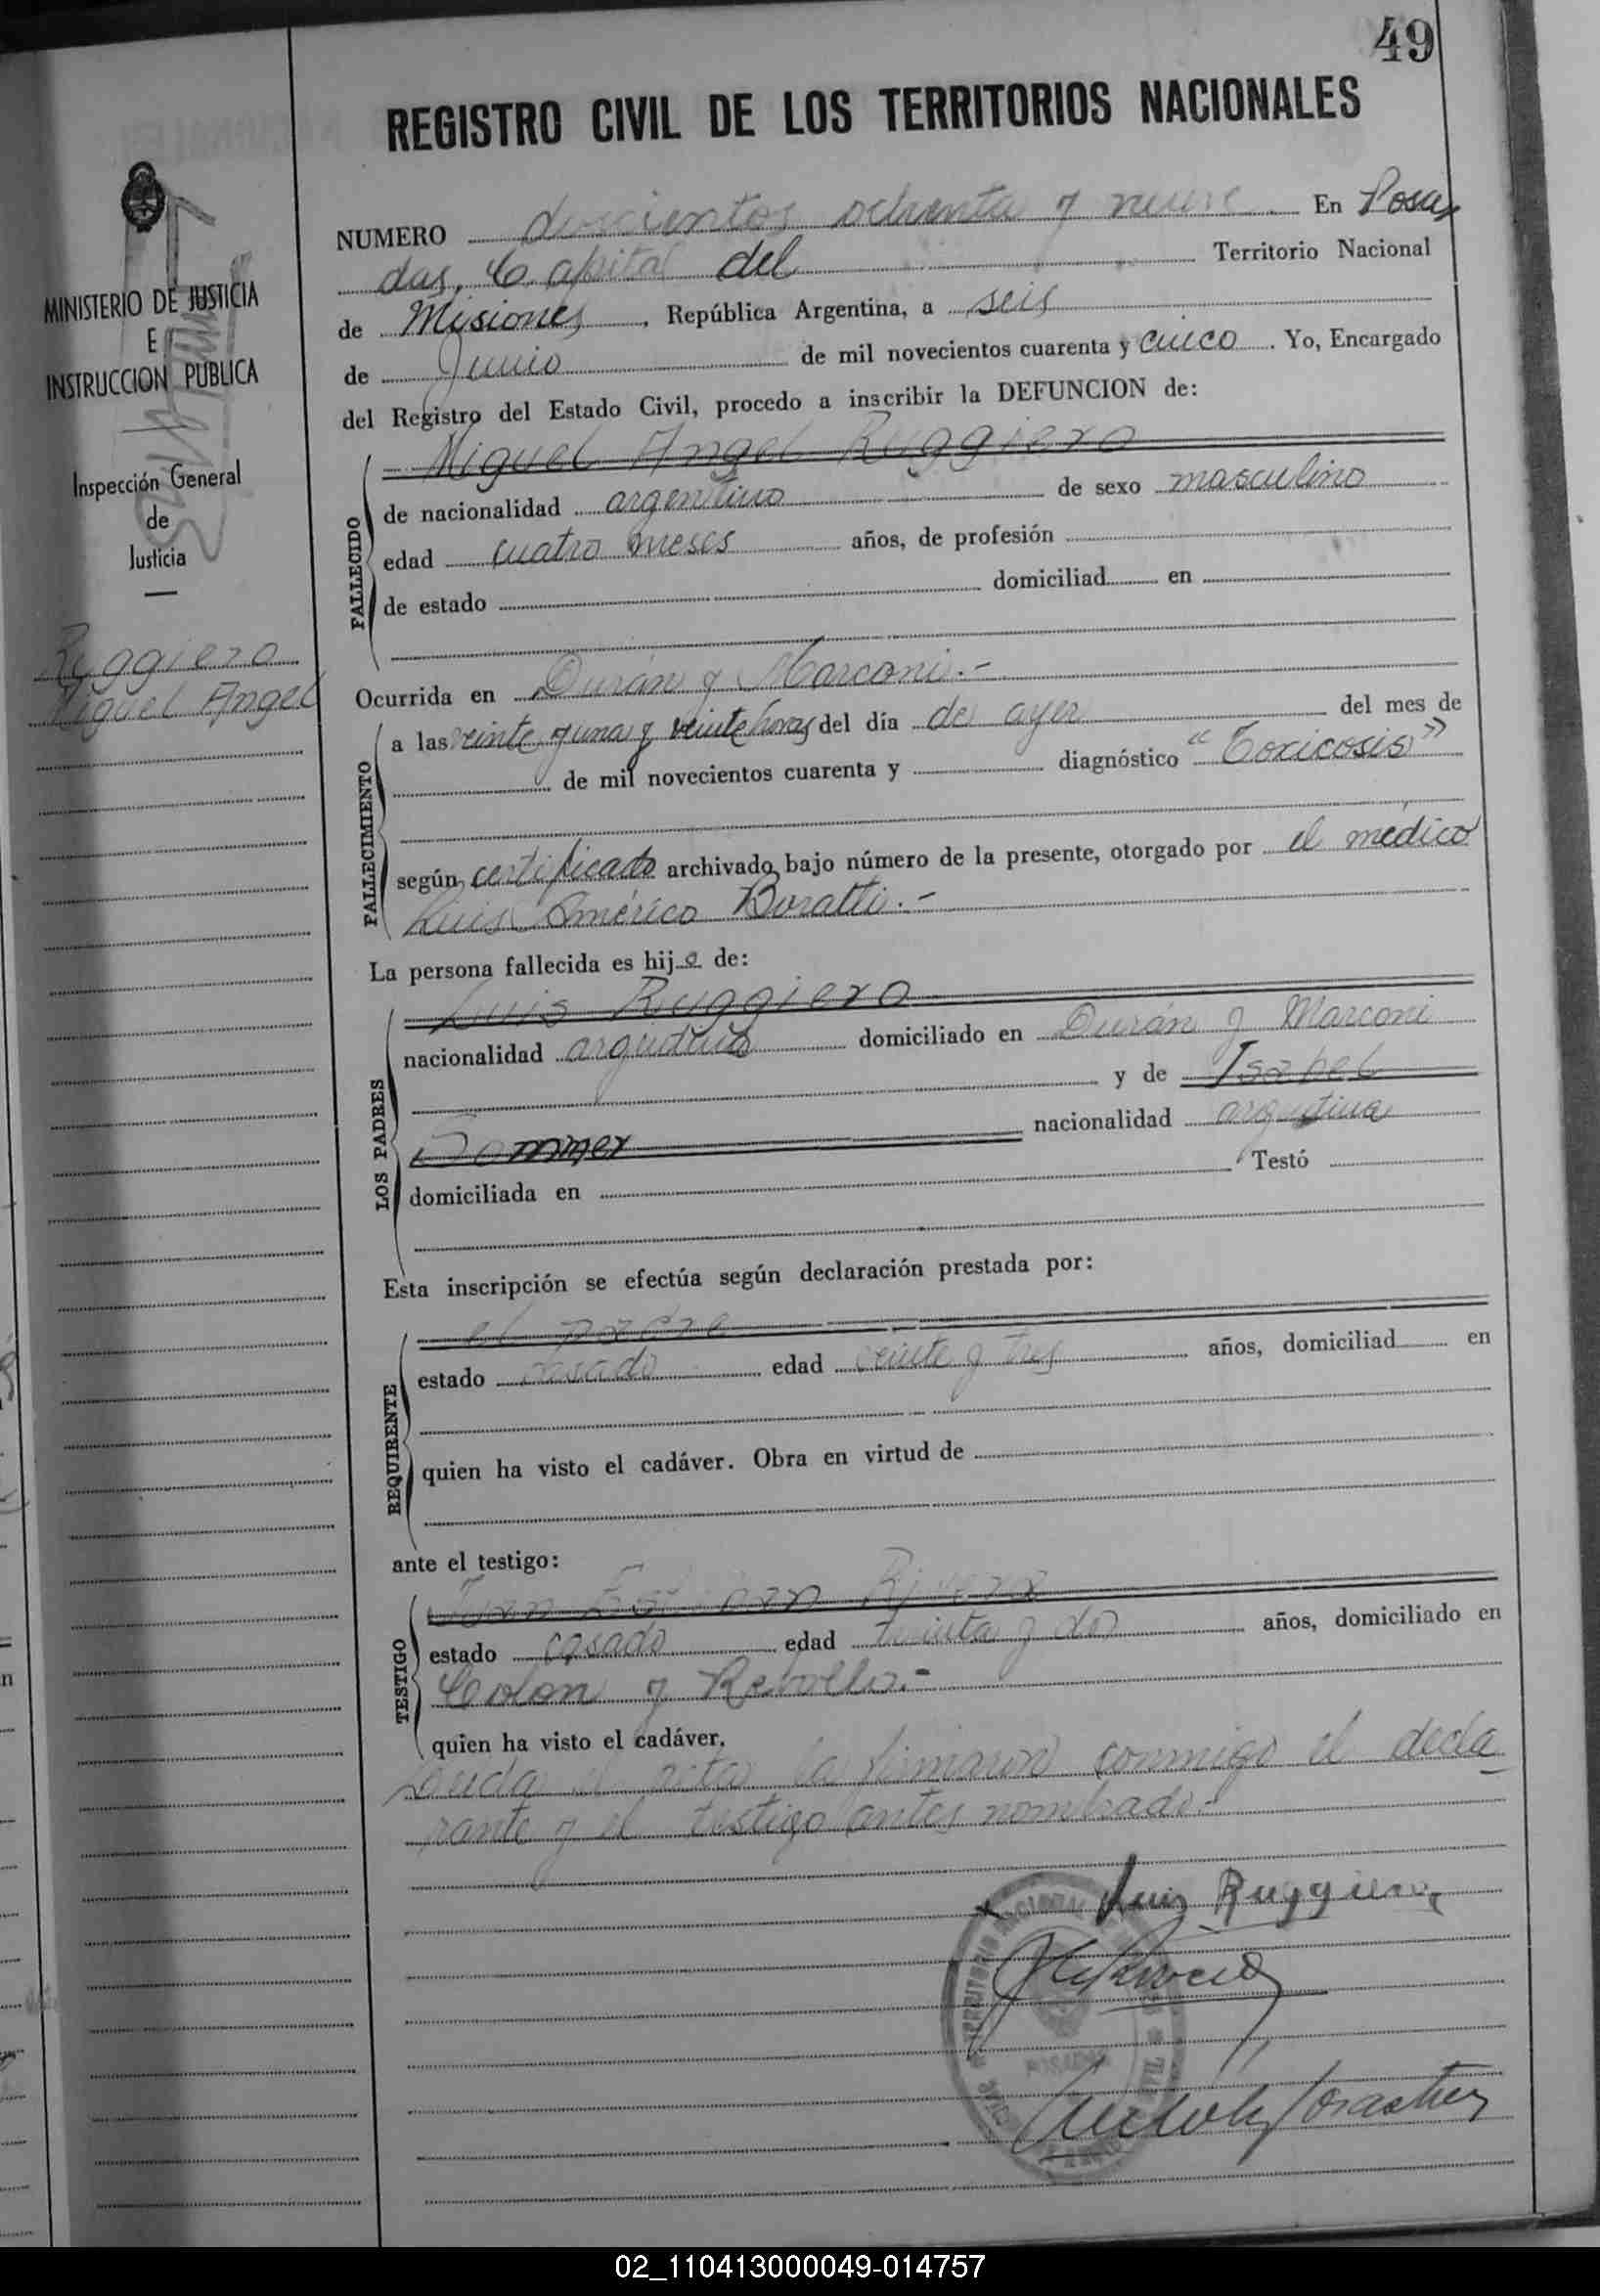 49
REGISTRO CIVIL DE LOS TERRITORIOS NACIONALES
MINISTERIO DE JUSTICIA
E
INSTRUCCION PUBLICA
Inspección General
de
Justicia
Ruggiero
Miguel Angel
NUMERO doscientos ochenta y nueve En Posa
das, Capital del Territorio Nacional
de Misiones, República Argentina, a seis
de Junio de mil novecientos cuarenta y cinco. Yo, Encargado
del Registro del Estado Civil, procedo a inscribir la DEFUNCION de:
Miguel Angel Ruggiero
FALLECIDO
de nacionalidad argentino de sexo masculino
edad cuatro meses años, de profesión
de estado domiciliad en
Ocurrida en Durán y Marconi.-
FALLECIMIENTO
a las veinte y una y veinte horas del día de ayer del mes de
de mil novecientos cuarenta y diagnóstico "Toxicosis"
según certificado archivado bajo número de la presente, otorgado por el médico
Luis Américo Boratti.-
La persona fallecida es hijo de:
LOS PADRES
Luis Ruggiero
nacionalidad argentino domiciliado en Durán y Marconi
y de Isabel
Sommer nacionalidad argentina
domiciliada en Testó
Esta inscripción se efectúa según declaración prestada por:
REQUIRENTE
el padre
estado casado edad veinte y tres años, domiciliad en
quien ha visto el cadáver. Obra en virtud de
ante el testigo:
TESTIGO
Juan Esteban Rivero
estado casado edad treinta y dos años, domiciliado en
Colon y Rebollo.-
quien ha visto el cadáver.
Leída el acta la firmaron conmigo el decla
rante y el testigo antes nombrado.-
Luis Ruggiero
POSADAS
02_110413000049-014757